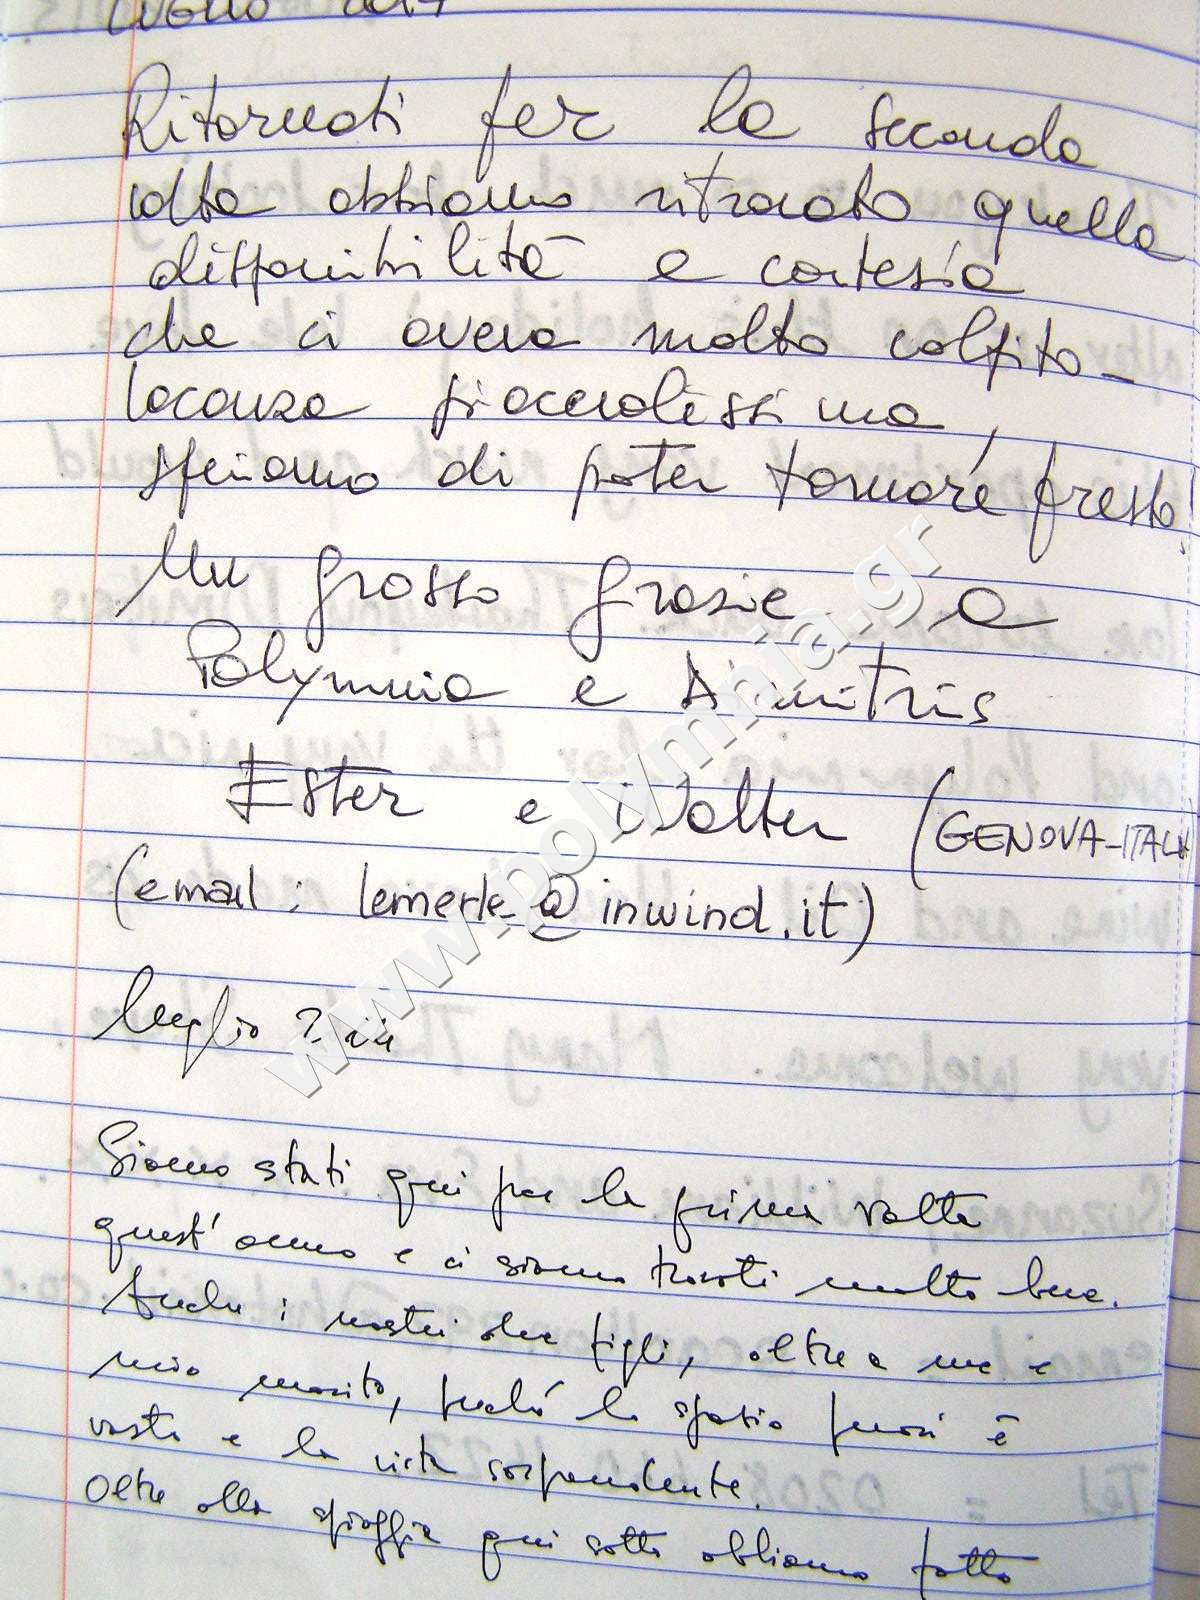 Luglio
Ritornati per la seconda
volta abbiamo ritrovato quella
disponibilità e cortesia
che ci aveva molto colpito-
Vacanza piacevolissima,
speriamo di poter tornare presto!
Un grosso grazie a
Polymnia e Dimitris
Ester e Walter (GENOVA-ITALY
(email: lemerle@inwind.it)
www.polymnia.gr
Luglio
Siamo stati qui per la prima volta
quest'anno e ci siamo trovati molto bene.
Anche i nostri due figli, oltre a me e
mio marito, perché lo spazio fuori è
vasto e la vista sorprendente.
Oltre alla spiaggia qui sotto abbiamo fatto